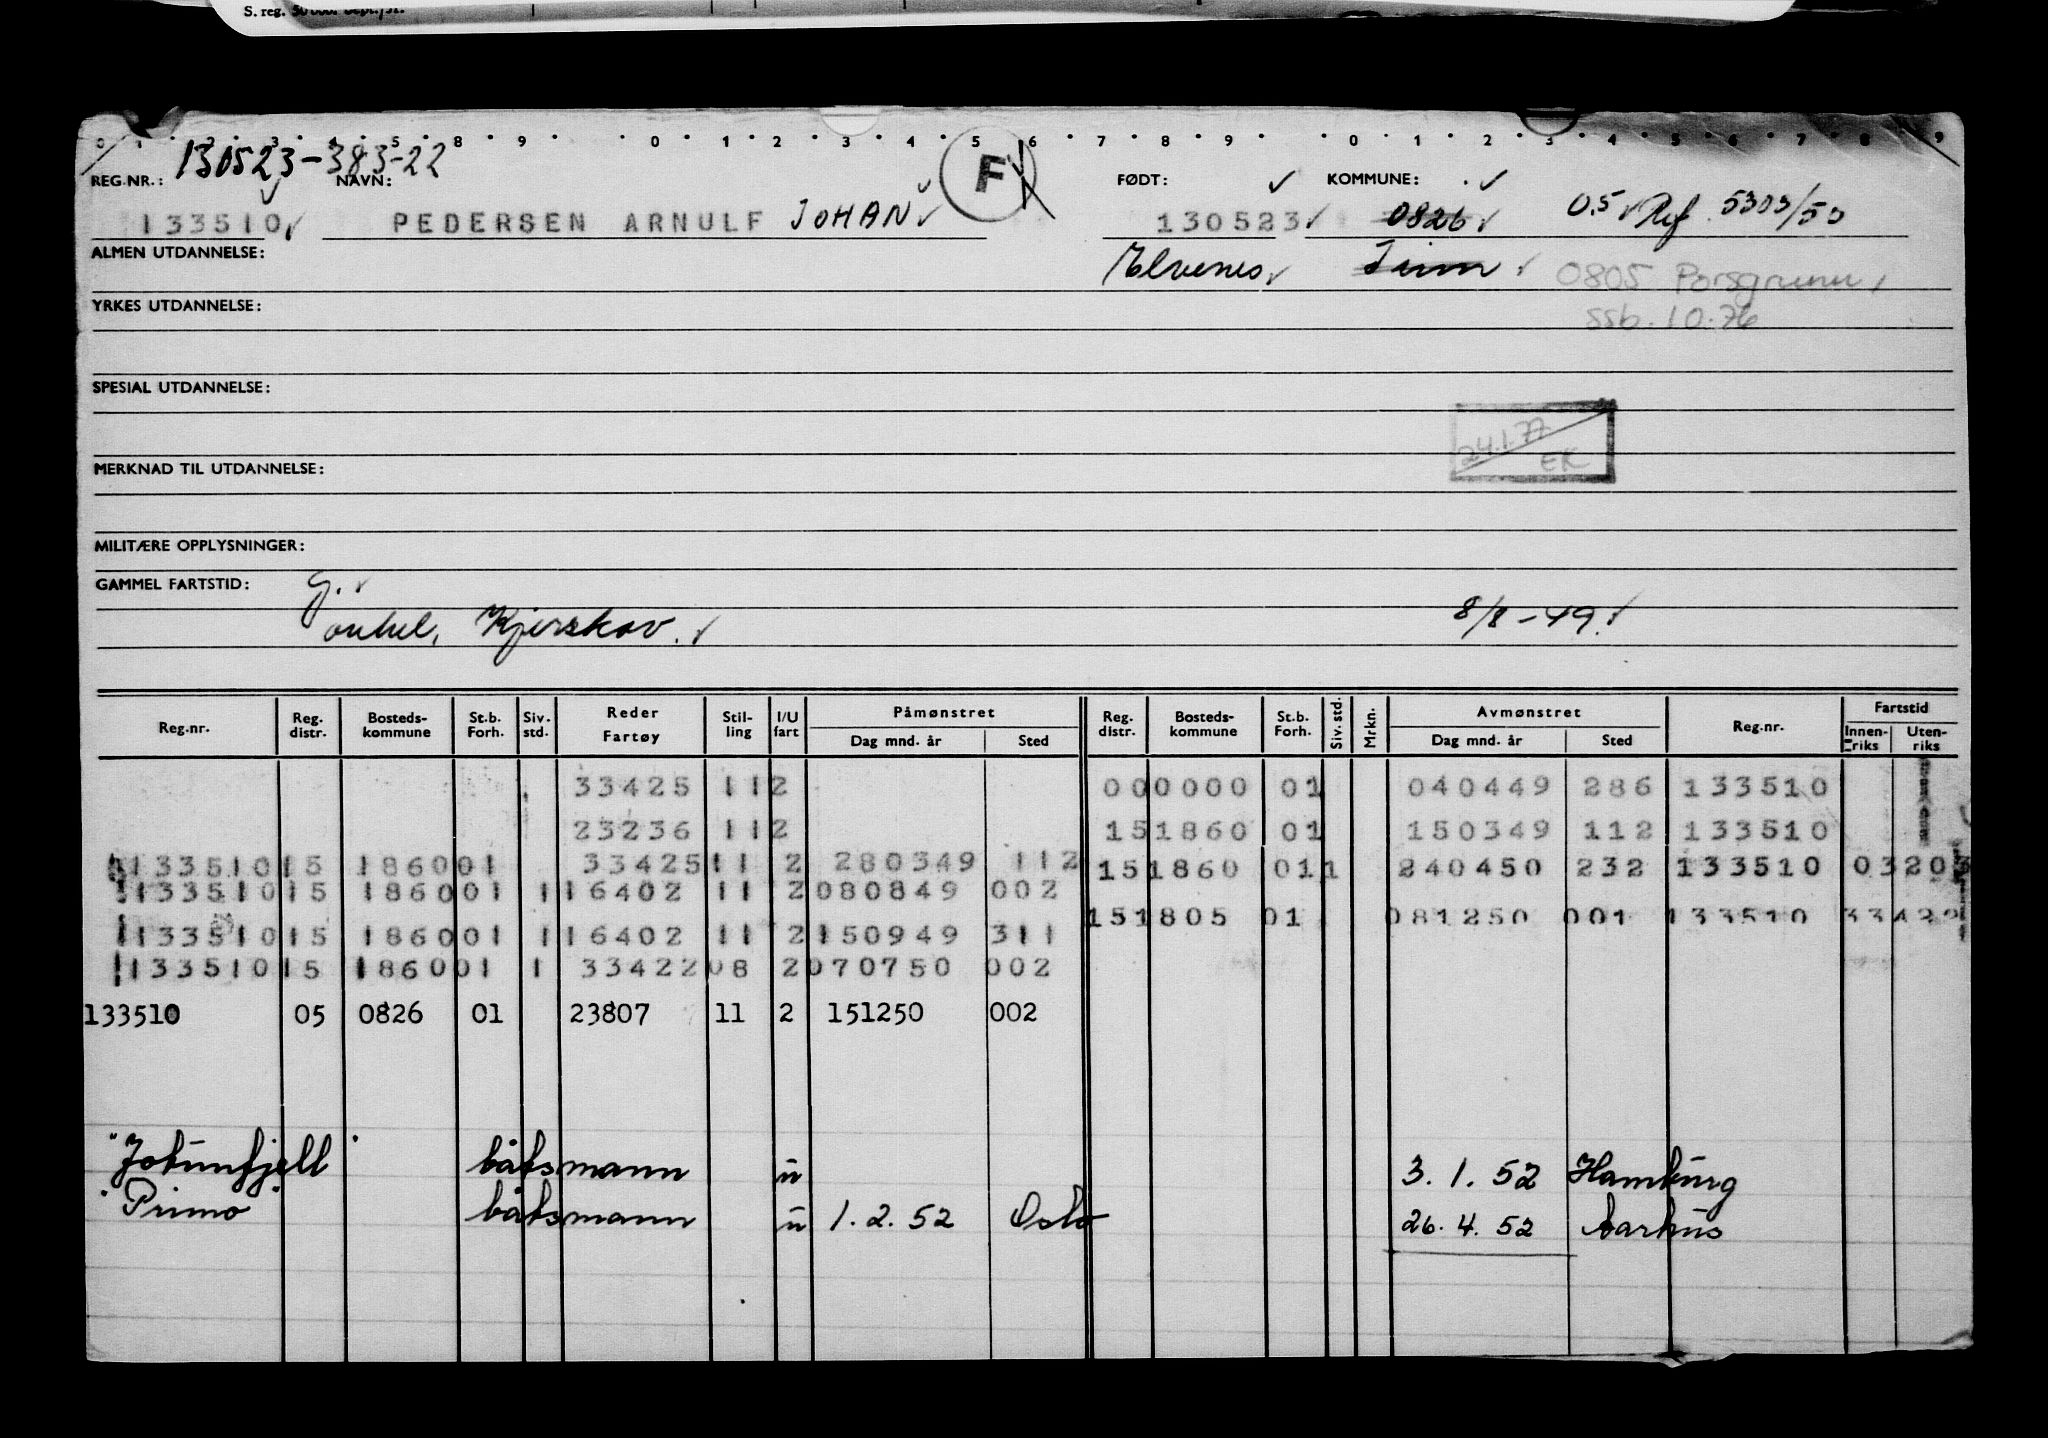 S. reg.
0 1 2 3 4 5 8 9 0 1 2 3 4 5 6 7 8 9 0 1 2 3 4 5 6 7 8 9
130523-383-22
REG.NR.: NAVN: F FØDT: KOMMUNE:
133510 PEDERSEN ARNULF JOHAN 130523 0826 05 Ref. 5303/53
ALMEN UTDANNELSE: Elvenes Tinn 0805 Porsgrunn
YRKES UTDANNELSE: ssb. 10.76
SPESIAL UTDANNELSE:
24.1.77
EK
MERKNAD TIL UTDANNELSE:
MILITÆRE OPPLYSNINGER:
GAMMEL FARTSTID: G.
Kjerskov. 8/8-49.
Reg.nr. Reg. distr. Bosteds-kommune St.b. Forh. Siv. std. Reder Fartøy Stil-ling I/U fart Påmønstret Dag mnd. år Sted Reg. distr. Bosteds-kommune St.b. Forh. Siv. std. Mrkn. Avmønstret Dag mnd. år Sted Reg.nr. Fartstid Innen-riks Uten-riks
33425 11 2 000000 01 040449 286 133510
23236 11 2 151860 01 150349 112 133510
133510 15 1860 01 33425 11 2 280349 112 151860 01 1 240450 232 133510 03 20
133510 15 1860 01 1 16402 11 2 080849 002
151805 01 081250 001 133510 33422
133510 15 1860 01 1 16402 11 2 150949 311
133510 15 1860 01 1 33422 08 2 070750 002
133510 05 0826 01 23807 11 2 151250 002
"Jotunfjell" båtsmann u 3.1.52 Hamburg
"Primo" båtsmann u 1.2.52 Oslo 26.4.52 Aarhus